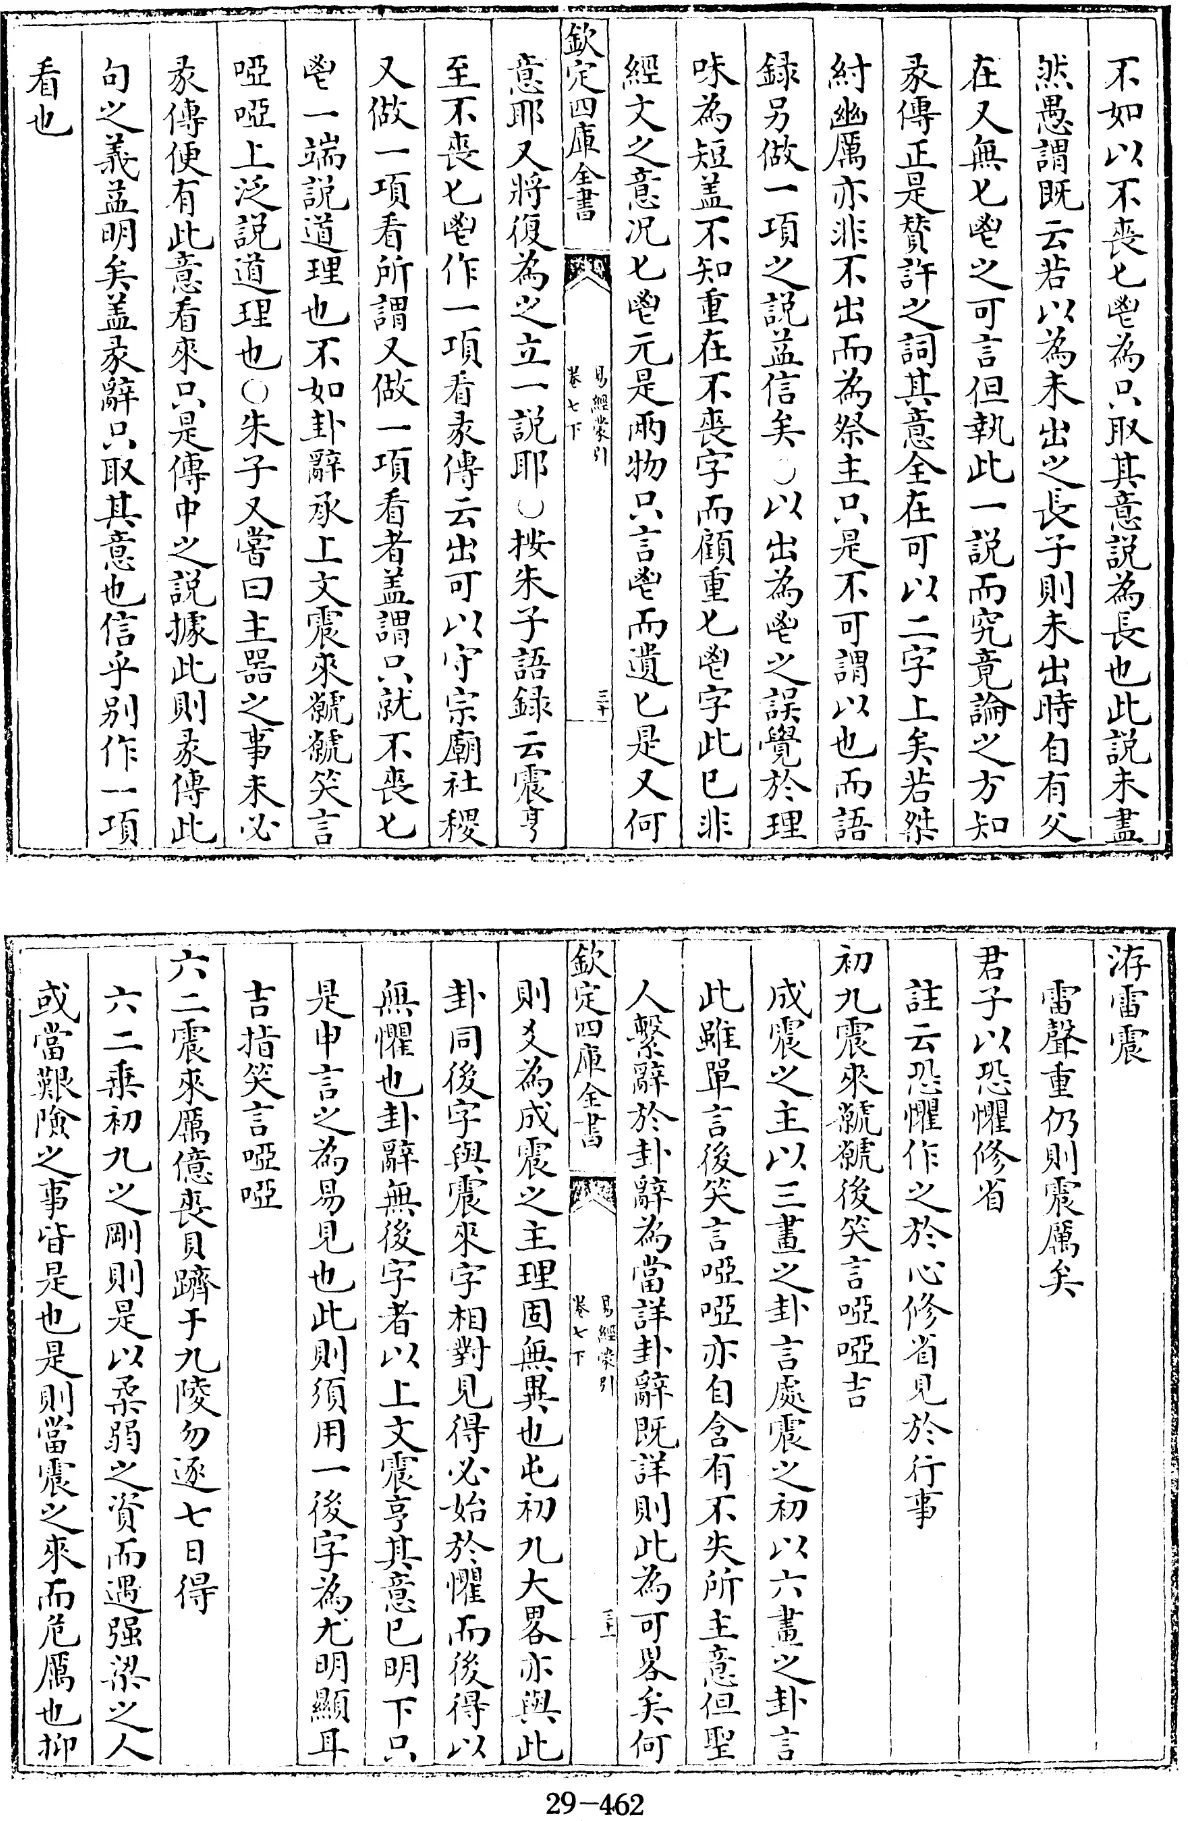 不如以不喪匕鬯為只取其意説為長也此説未盡
然愚謂既云若以為未出之長子則未出時自有父
在又無匕鬯之可言但執此一説而究竟論之方知
彖傳正是賛許之詞其意全在可以二字上矣若桀
紂幽厲亦非不出而為祭主只是不可謂以也而語
録另做一項之説益信矣○以出為鬯之誤覺於理
味為短盖不知重在不喪字而顧重匕鬯字此已非
經文之意况匕鬯元是兩物只言鬯而遺匕是又何
欽定四庫全書
易經蒙引
卷七下
三十
意耶又將復為之立一説耶○按朱子語録云震亨
至不喪匕鬯作一項看彖傳云出可以守宗廟社稷
又做一項看所謂又做一項看者盖謂只就不喪匕
鬯一端説道理也不如卦辭承上文震來虩虩笑言
啞啞上泛説道理也○朱子又嘗曰主器之事未必
彖傳便有此意看來只是傳中之説據此則彖傳此
句之義益明矣盖彖辭只取其意也信乎别作一項
看也
洊雷震
雷聲重仍則震厲矣
君子以恐懼修省
註云恐懼作之於心修省見於行事
初九震來虩虩後笑言啞啞吉
成震之主以三畫之卦言處震之初以六畫之卦言
此雖單言後笑言啞啞亦自含有不失所主意但聖
人繫辭於卦辭為當詳卦辭既詳則此為可畧矣何
欽定四庫全書
易經蒙引
卷七下
三十一
則爻為成震之主理固無異也屯初九大畧亦與此
卦同後字與震來字相對見得必始於懼而後得以
無懼也卦辭無後字者以上文震亨其意已明下只
是申言之為易見也此則須用一後字為尤明顯耳
吉指笑言啞啞
六二震來厲億喪貝躋于九陵勿逐七日得
六二乗初九之剛則是以柔弱之資而遇强梁之人
或當艱險之事皆是也是則當震之來而危厲也抑
29-462